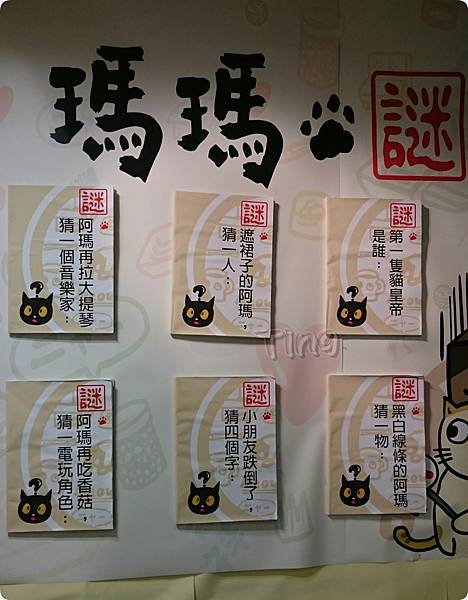 瑪瑪謎
謎
阿瑪再拉大提琴
猜一個音樂家：
謎
遮裙子的阿瑪，
猜一人：
謎
第一隻貓皇帝
是誰：
Ting
謎
阿瑪再吃香菇，
猜一電玩角色：
謎
小朋友跌倒了，
猜四個字：
謎
黑白線條的阿瑪
猜一物：